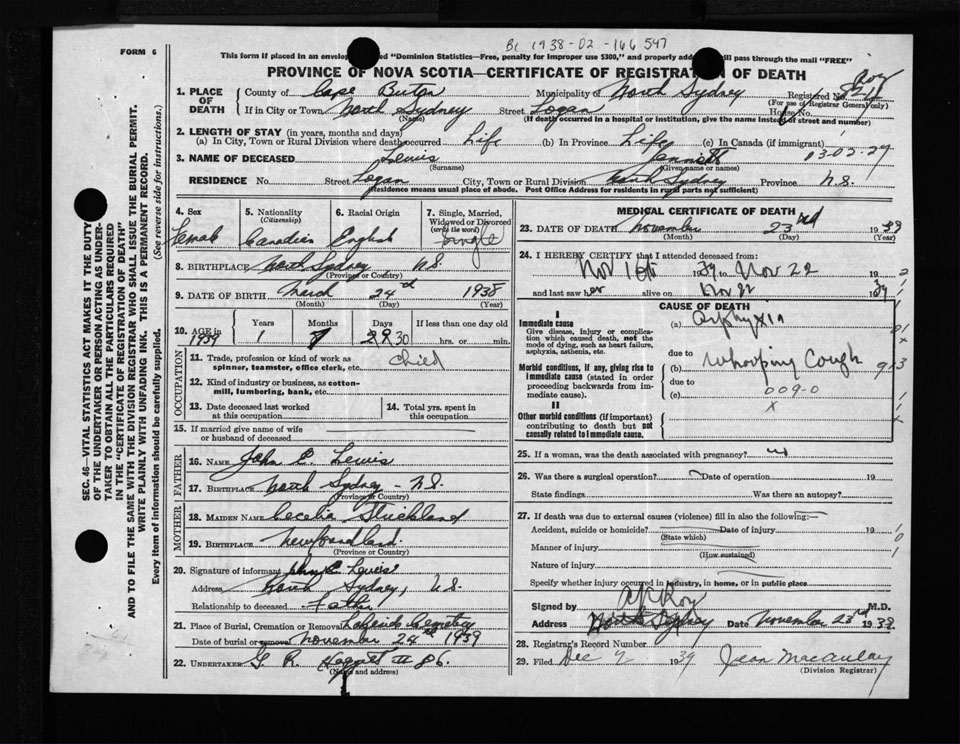 B. 1938-02-166547
FORM 6
This form if placed in an envelope "Dominion Statistics—Free, penalty for improper use $300," and properly will pass through the mail "FREE"
PROVINCE OF NOVA SCOTIA—CERTIFICATE OF REGISTRATION OF DEATH
1. PLACE OF DEATH County of Cape Breton Municipality of North Sydney Registered No.
(For use of Registrar General only)
If in City or Town North Sydney Street Logan House No.
(Name) (If death occurred in a hospital or institution, give the name instead of street and number)
2. LENGTH OF STAY (in years, months and days)
(a) In City, Town or Rural Division where death occurred Life (b) In Province Life (c) In Canada (if immigrant)
03-02-29
3. NAME OF DECEASED Lewis
(Surname) (Given name or names)
RESIDENCE No. Street Logan City, Town or Rural Division North Sydney Province N.S.
(Residence means usual place of abode. Post Office Address for residents in rural parts not sufficient)
4. Sex Female
5. Nationality (Citizenship) Canadian
6. Racial Origin English
7. Single, Married, Widowed or Divorced (write the word) Single
8. BIRTHPLACE North Sydney, N.S.
(Province or Country)
9. DATE OF BIRTH March 24th 1938
(Month) (Day) (Year)
10. AGE in Years Months Days If less than one day old
1939 1 30 hrs. or min.
OCCUPATION
11. Trade, profession or kind of work as spinner, teamster, office clerk, etc. Child
12. Kind of industry or business, as cotton-mill, lumbering, bank, etc.
13. Date deceased last worked at this occupation
14. Total yrs. spent in this occupation
15. If married give name of wife or husband of deceased
FATHER
16. NAME John C. Lewis
17. BIRTHPLACE North Sydney - N.S.
(Province or Country)
MOTHER
18. MAIDEN NAME Cecelia Strickland
19. BIRTHPLACE Newfoundland
(Province or Country)
20. Signature of informant John C Lewis
Address North Sydney, N.S.
Relationship to deceased Father
21. Place of Burial, Cremation or Removal Lakeside Cemetery
Date of burial or removal November 24th 1939
22. UNDERTAKER G. R.
(Name and address)
MEDICAL CERTIFICATE OF DEATH
23. DATE OF DEATH November 23rd 1939
(Month) (Day) (Year)
24. I HEREBY CERTIFY that I attended deceased from:
Nov 16th 1939 to Nov 22 19
and last saw her alive on Nov 22 1939
CAUSE OF DEATH
I
Immediate cause (a) Asphyxia
Give disease, injury or complication which caused death, not the mode of dying, such as heart failure, asphyxia, asthenia, etc.
due to
Whooping Cough
Morbid conditions, if any, giving rise to immediate cause (stated in order proceeding backwards from immediate cause).
(b)
due to
009-0
(c)
x
II
Other morbid conditions (if important) contributing to death but not causally related to immediate cause.
25. If a woman, was the death associated with pregnancy?
26. Was there a surgical operation? Date of operation 19
State findings Was there an autopsy?
27. If death was due to external causes (violence) fill in also the following:
Accident, suicide or homicide? Date of injury 19
(State which)
Manner of injury
(How sustained)
Nature of injury
Specify whether injury occurred in industry, in home, or in public place
Signed by M.D.
Address North Sydney Date November 23rd 1939
28. Registrar's Record Number
29. Filed Dec 2 1939 Jean Macaulay
(Division Registrar)
SEC. 46—VITAL STATISTICS ACT MAKES IT THE DUTY
OF THE UNDERTAKER OR PERSON ACTING AS UNDER-
TAKER TO OBTAIN ALL THE PARTICULARS REQUIRED
IN THE "CERTIFICATE OF REGISTRATION OF DEATH"
AND TO FILE THE SAME WITH THE DIVISION REGISTRAR WHO SHALL ISSUE THE BURIAL PERMIT.
WRITE PLAINLY WITH UNFADING INK. THIS IS A PERMANENT RECORD.
Every item of information should be carefully supplied. (See reverse side for instructions.)